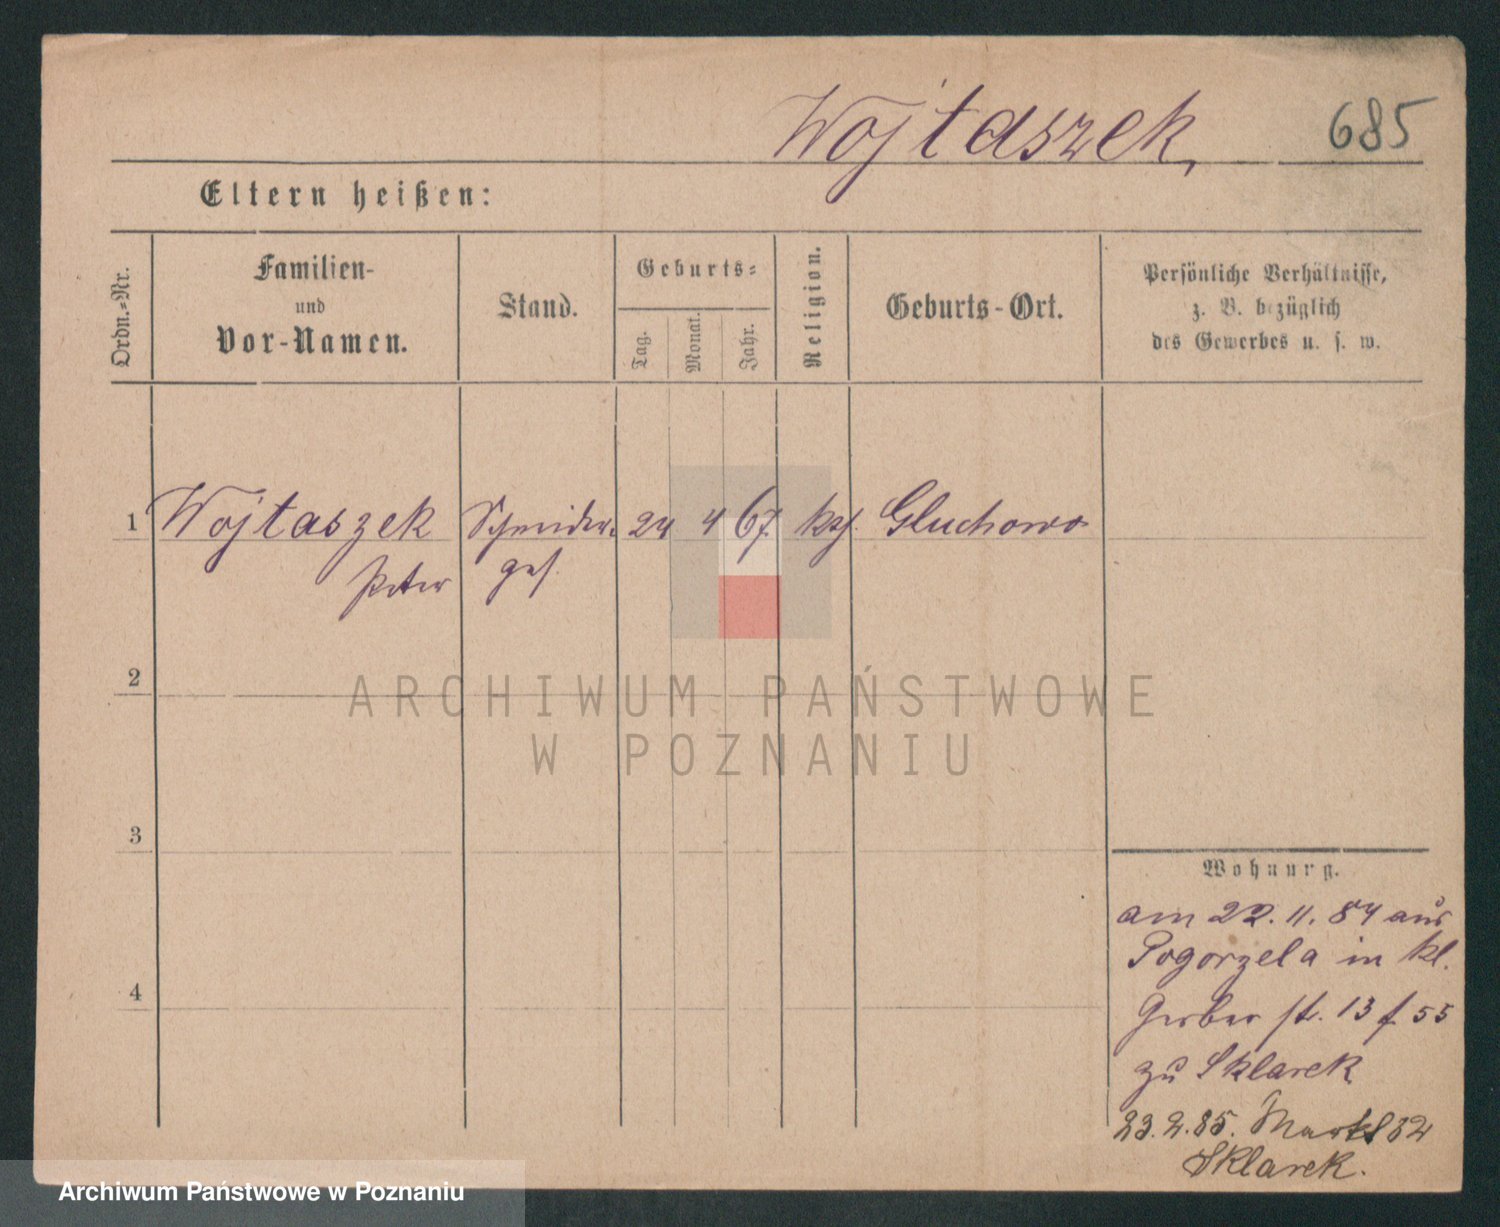 Wojtaszek, 685
Eltern heißen:
Ordn.-Nr.
Familien-
und
Vor-Namen.
Stand.
Geburts-
Tag.
Monat.
Jahr.
Religion.
Geburts-Ort.
Persönliche Verhältnisse,
z. B. bezüglich
des Gewerbes u. s. w.
1 Wojtaszek Schneider- 24 4 67. kth. Gluchowo
Peter ges.
2
ARCHIWUM PAŃSTWOWE
W POZNANIU
3
4
Wohnung.
am 22. 11. 84 aus
Pogorzela in kl.
Gerber str. 13 f 55
zu Sklarek
23. 2. 85. Markt 32
Sklarek.
Archiwum Państwowe w Poznaniu